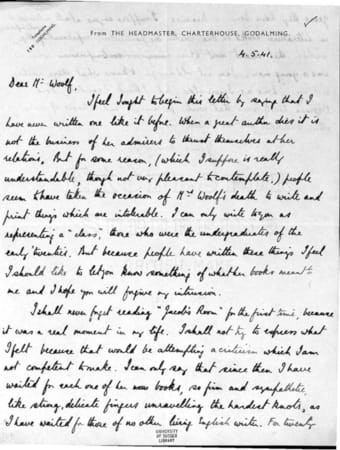 From THE HEADMASTER, CHARTERHOUSE, GODALMING.
4.5.41.
Dear Mr Woolf,
I feel I ought to begin this letter by saying that I
have never written one like it before. When a great author dies it is
not the business of her admirers to thrust themselves at her
relations, But for some reason, (which I suppose is really
understandable, though not very pleasant to contemplate,) people
seem to have taken the occasion of Mrs Woolf's death to write and
print things which are intolerable. I can only write to you as
representing a "class", those who were the undergraduates of the
early 'twenties. But because people have written these things I feel
I should like to let you know something of what her books meant to
me and I hope you will forgive my intrusion.
I shall never forget reading "Jacob's Room" for the first time, because
it was a real moment in my life. I shall not try to express what
I felt because that would be attempting a criticism which I am
not competent to make. I can only say that since then I have
waited for each one of her new books, so firm and sympathetic,
like strong, delicate fingers unravelling the hardest knots, as
I have waited for those of no other living English writer. For twenty
UNIVERSITY
OF SUSSEX
LIBRARY